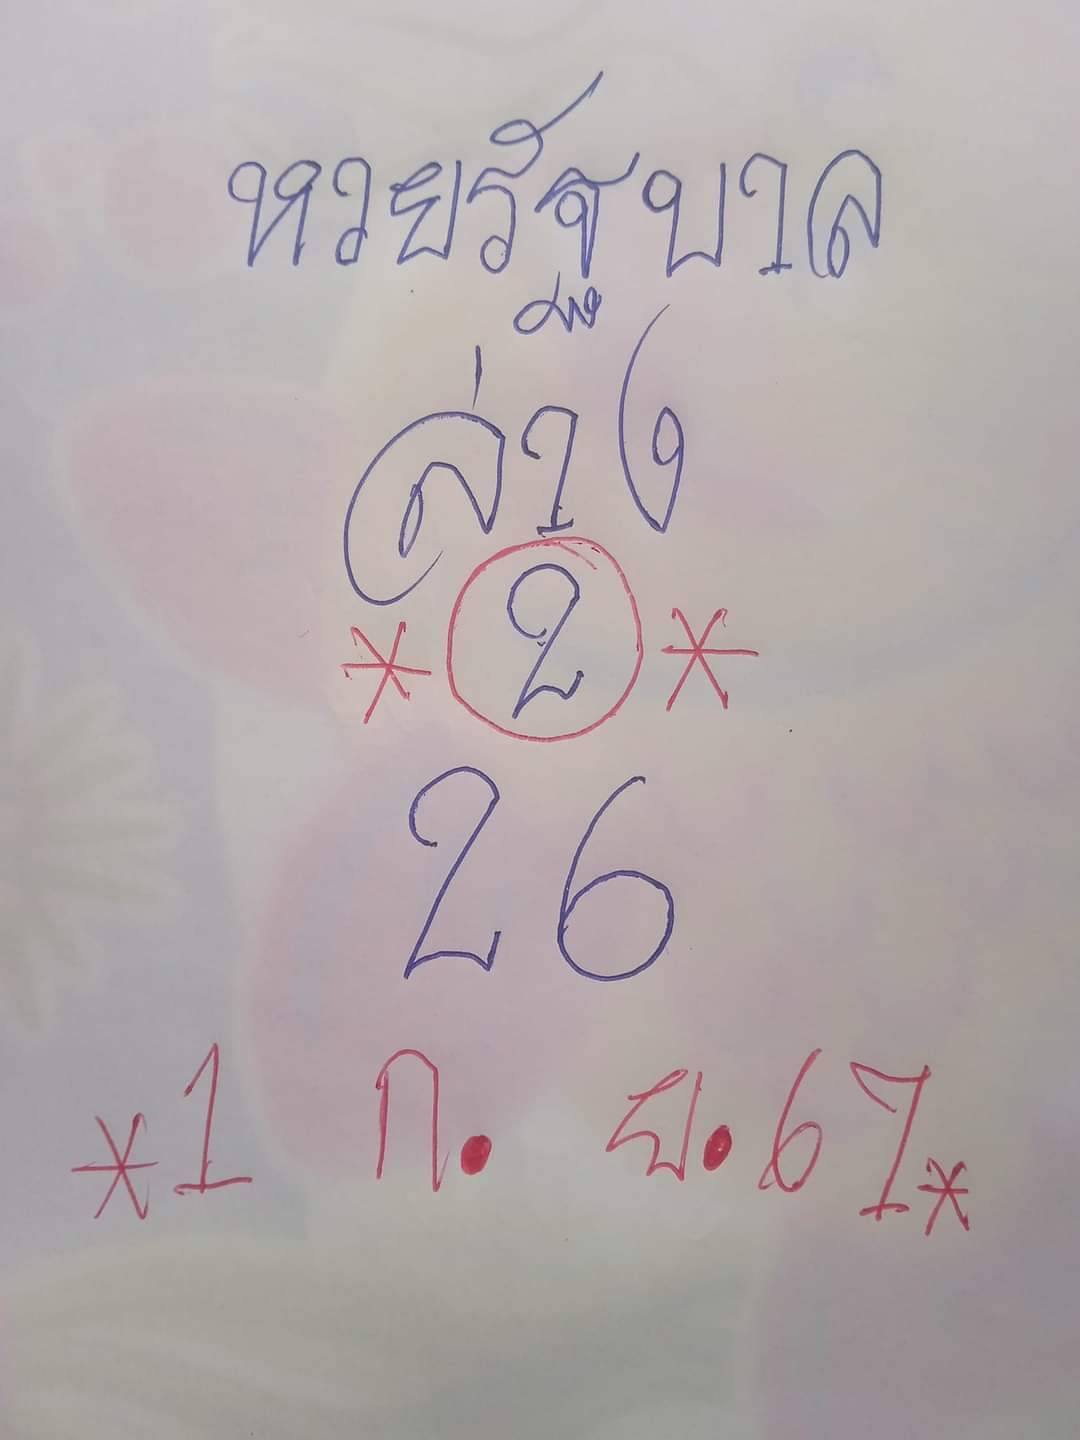 หวยรัฐบาล
ล่าง
* 2 *
26
*1 ก. ย. 67*